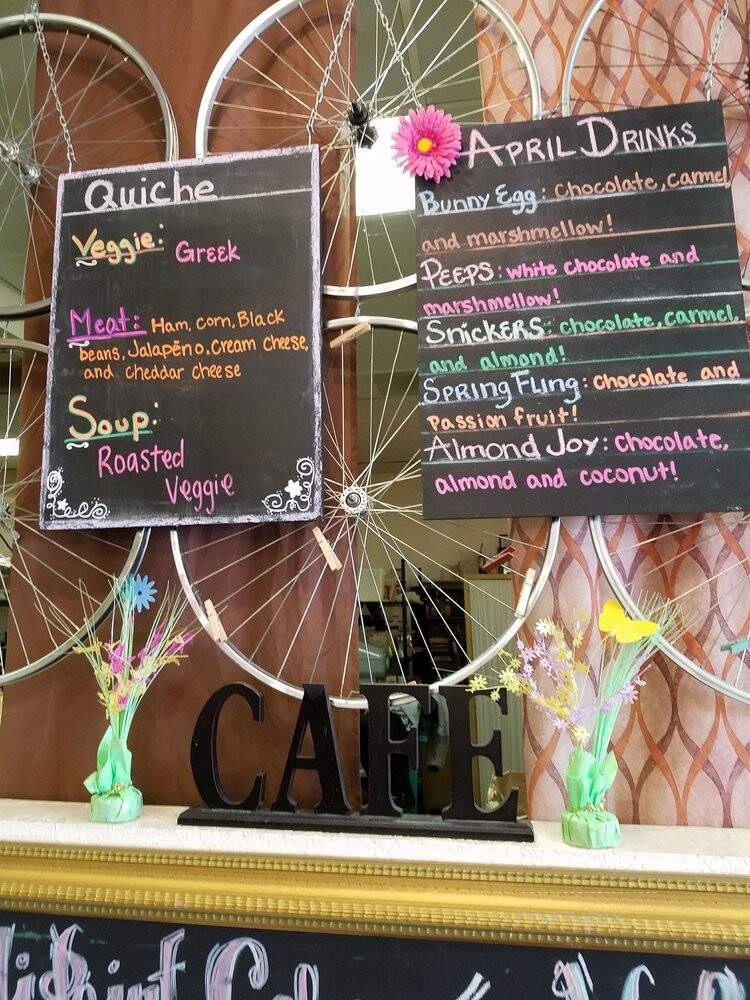 Quiche
Veggie: Greek
Meat: Ham, corn, Black
beans, Jalapēno, cream cheese,
and cheddar cheese
Soup:
Roasted
Veggie
April Drinks
Bunny Egg: chocolate, carmel
and marshmellow!
Peeps: white chocolate and
marshmellow!
Snickers: chocolate, carmel,
and almond!
Spring Fling: chocolate and
Passion fruit!
Almond Joy: chocolate,
almond and coconut!
CAFE